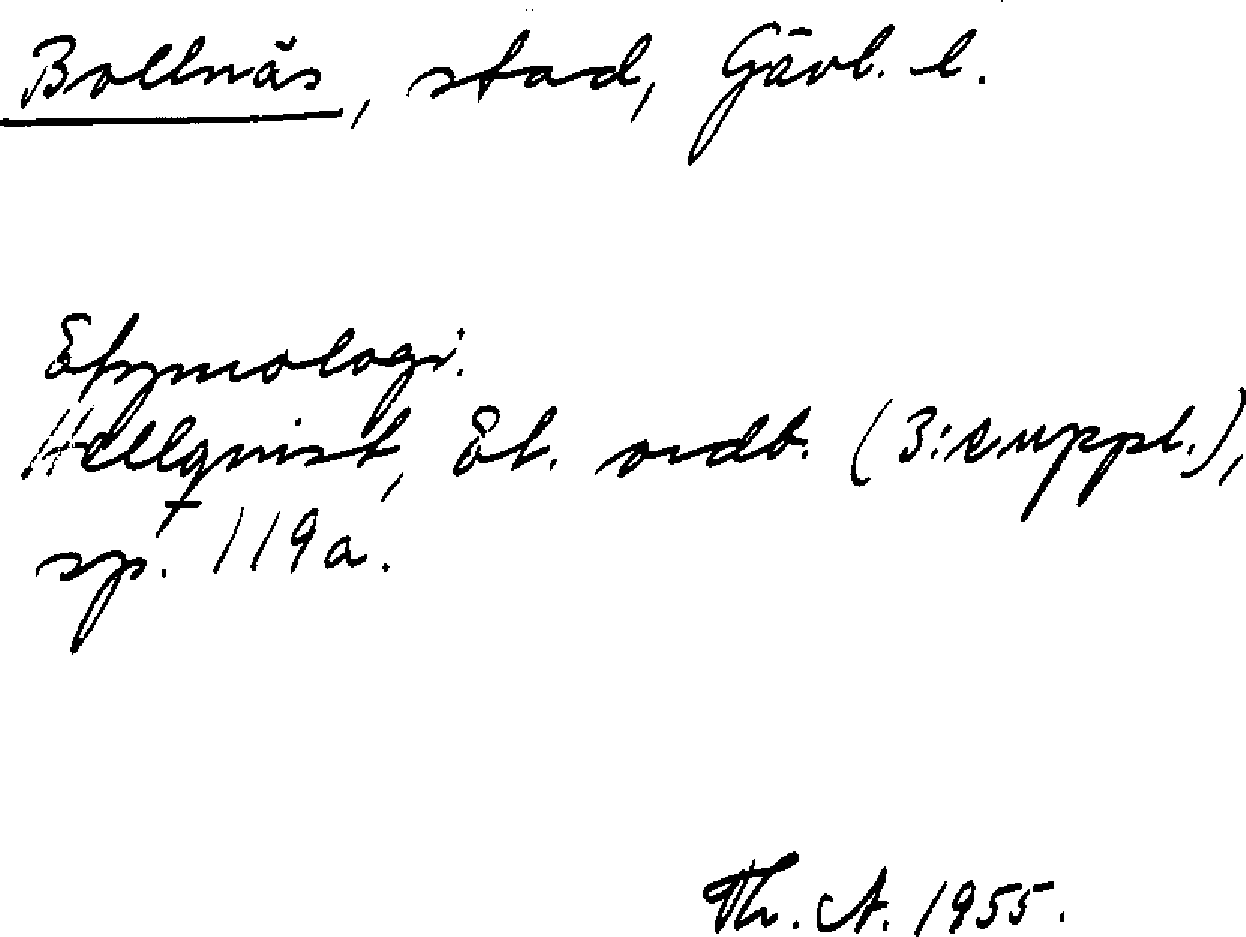 Bollnäs, stad, Gävl. l.
Etymologi.
Hellquist, Et. ordb. (3:e uppl.),
sp. 119a.
Th. A. 1955.